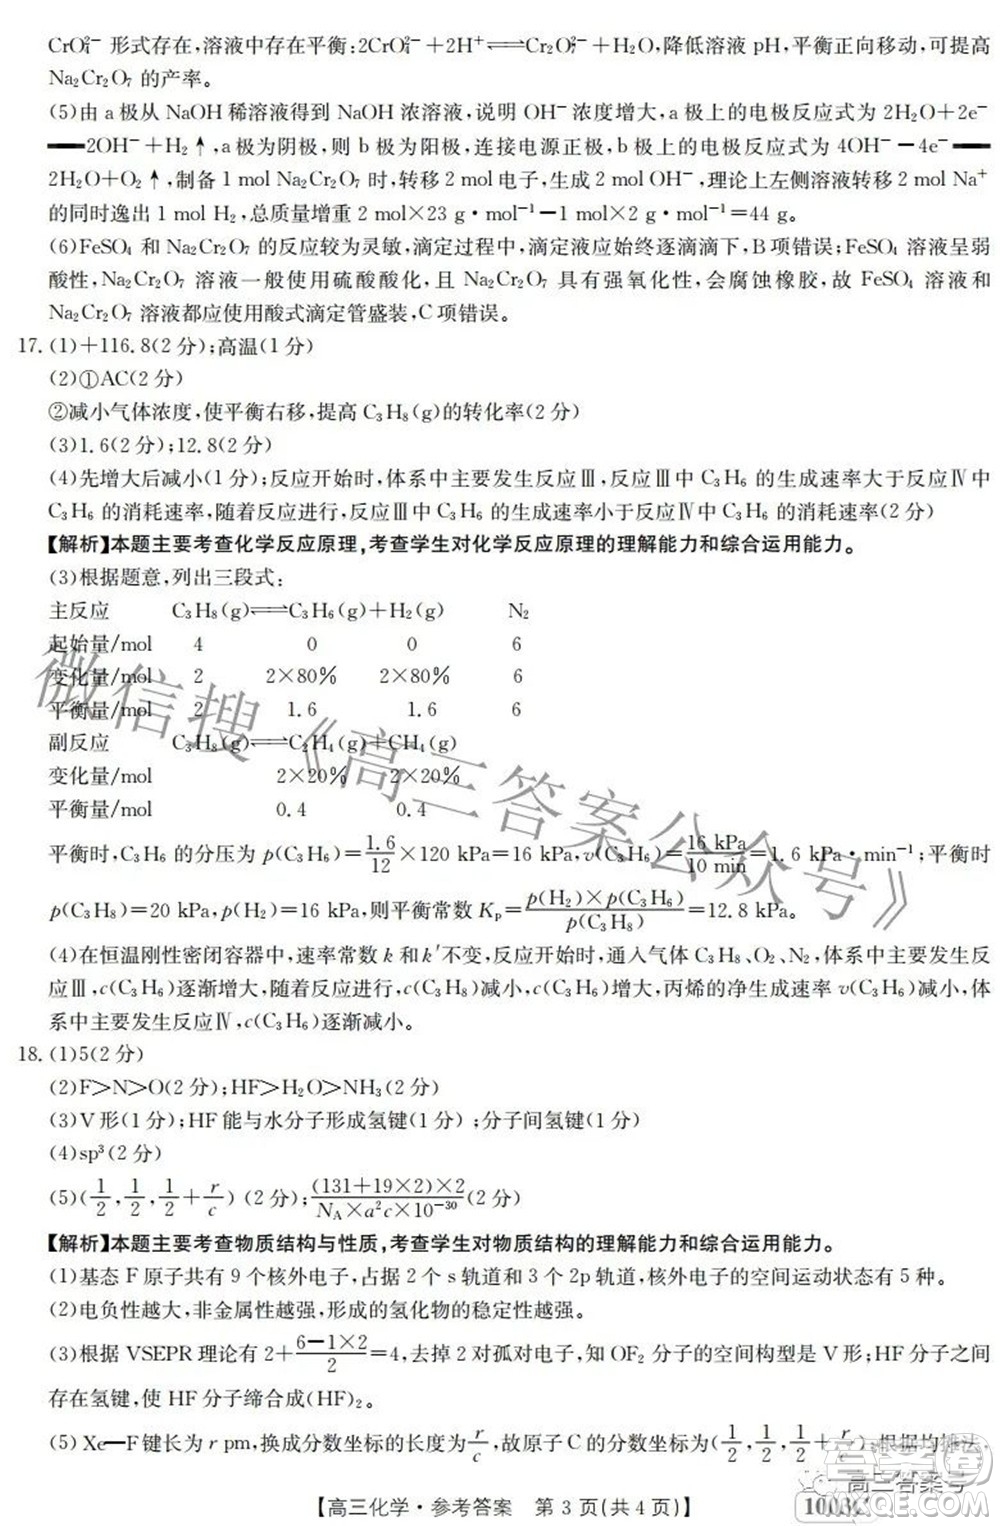 CrO₄²⁻ 形式存在,溶液中存在平衡:2CrO₄²⁻+2H⁺⇌Cr₂O₇²⁻+H₂O,降低溶液 pH,平衡正向移动,可提高
Na₂Cr₂O₇ 的产率。
(5)由 a 极从 NaOH 稀溶液得到 NaOH 浓溶液,说明 OH⁻ 浓度增大,a 极上的电极反应式为 2H₂O+2e⁻
══2OH⁻+H₂↑,a 极为阴极,则 b 极为阳极,连接电源正极,b 极上的电极反应式为 4OH⁻−4e⁻══
2H₂O+O₂↑,制备 1 mol Na₂Cr₂O₇ 时,转移 2 mol 电子,生成 2 mol OH⁻,理论上左侧溶液转移 2 mol Na⁺
的同时逸出 1 mol H₂,总质量增重 2 mol×23 g·mol⁻¹−1 mol×2 g·mol⁻¹=44 g。
(6)FeSO₄ 和 Na₂Cr₂O₇ 的反应较为灵敏,滴定过程中,滴定液应始终逐滴滴下,B 项错误;FeSO₄ 溶液呈弱
酸性,Na₂Cr₂O₇ 溶液一般使用硫酸酸化,且 Na₂Cr₂O₇ 具有强氧化性,会腐蚀橡胶,故 FeSO₄ 溶液和
Na₂Cr₂O₇ 溶液都应使用酸式滴定管盛装,C 项错误。
17. (1)+116.8(2 分);高温(1 分)
(2)①AC(2 分)
②减小气体浓度,使平衡右移,提高 C₃H₈(g)的转化率(2 分)
(3)1.6(2 分);12.8(2 分)
(4)先增大后减小(1 分);反应开始时,体系中主要发生反应Ⅲ,反应Ⅲ中 C₃H₆ 的生成速率大于反应Ⅳ中
C₃H₆ 的消耗速率,随着反应进行,反应Ⅲ中 C₃H₆ 的生成速率小于反应Ⅳ中 C₃H₆ 的消耗速率(2 分)
【解析】本题主要考查化学反应原理,考查学生对化学反应原理的理解能力和综合运用能力。
(3)根据题意,列出三段式:
主反应 C₃H₈(g)⇌C₃H₆(g)+H₂(g) N₂
起始量/mol 4 0 0 6
变化量/mol 2 2×80% 2×80% 6
平衡量/mol 2 1.6 1.6 6
副反应 C₃H₈(g)⇌C₂H₄(g)+CH₄(g)
变化量/mol 2×20% 2×20%
平衡量/mol 0.4 0.4
平衡时,C₃H₆ 的分压为 p(C₃H₆)=1.6/12×120 kPa=16 kPa,v(C₃H₆)=16 kPa/10 min=1.6 kPa·min⁻¹;平衡时
p(C₃H₈)=20 kPa,p(H₂)=16 kPa,则平衡常数 Kₚ=p(H₂)×p(C₃H₆)/p(C₃H₈)=12.8 kPa。
(4)在恒温刚性密闭容器中,速率常数 k 和 k′不变,反应开始时,通入气体 C₃H₈、O₂、N₂,体系中主要发生反
应Ⅲ,c(C₃H₆)逐渐增大,随着反应进行,c(C₃H₈)减小,c(C₃H₆)增大,丙烯的净生成速率 v(C₃H₆)减小,体
系中主要发生反应Ⅳ,c(C₃H₆)逐渐减小。
18. (1)5(2 分)
(2)F>N>O(2 分);HF>H₂O>NH₃(2 分)
(3)V 形(1 分);HF 能与水分子形成氢键(1 分);分子间氢键(1 分)
(4)sp³(2 分)
(5)(1/2,1/2,1/2+r/c)(2 分);(131+19×2)×2/(N_A×a²c×10⁻³⁰)(2 分)
【解析】本题主要考查物质结构与性质,考查学生对物质结构的理解能力和综合运用能力。
(1)基态 F 原子共有 9 个核外电子,占据 2 个 s 轨道和 3 个 2p 轨道,核外电子的空间运动状态有 5 种。
(2)电负性越大,非金属性越强,形成的氢化物的稳定性越强。
(3)根据 VSEPR 理论有 2+(6−1×2)/2=4,去掉 2 对孤对电子,知 OF₂ 分子的空间构型是 V 形;HF 分子之间
存在氢键,使 HF 分子缔合成(HF)₂。
(5) Xe—F 键长为 r pm,换成分数坐标的长度为 r/c,故原子 C 的分数坐标为(1/2,1/2,1/2+r/c),根据均摊法,
【高三化学·参考答案 第 3 页(共 4 页)】
微信搜《高三答案公众号》
高三答案号